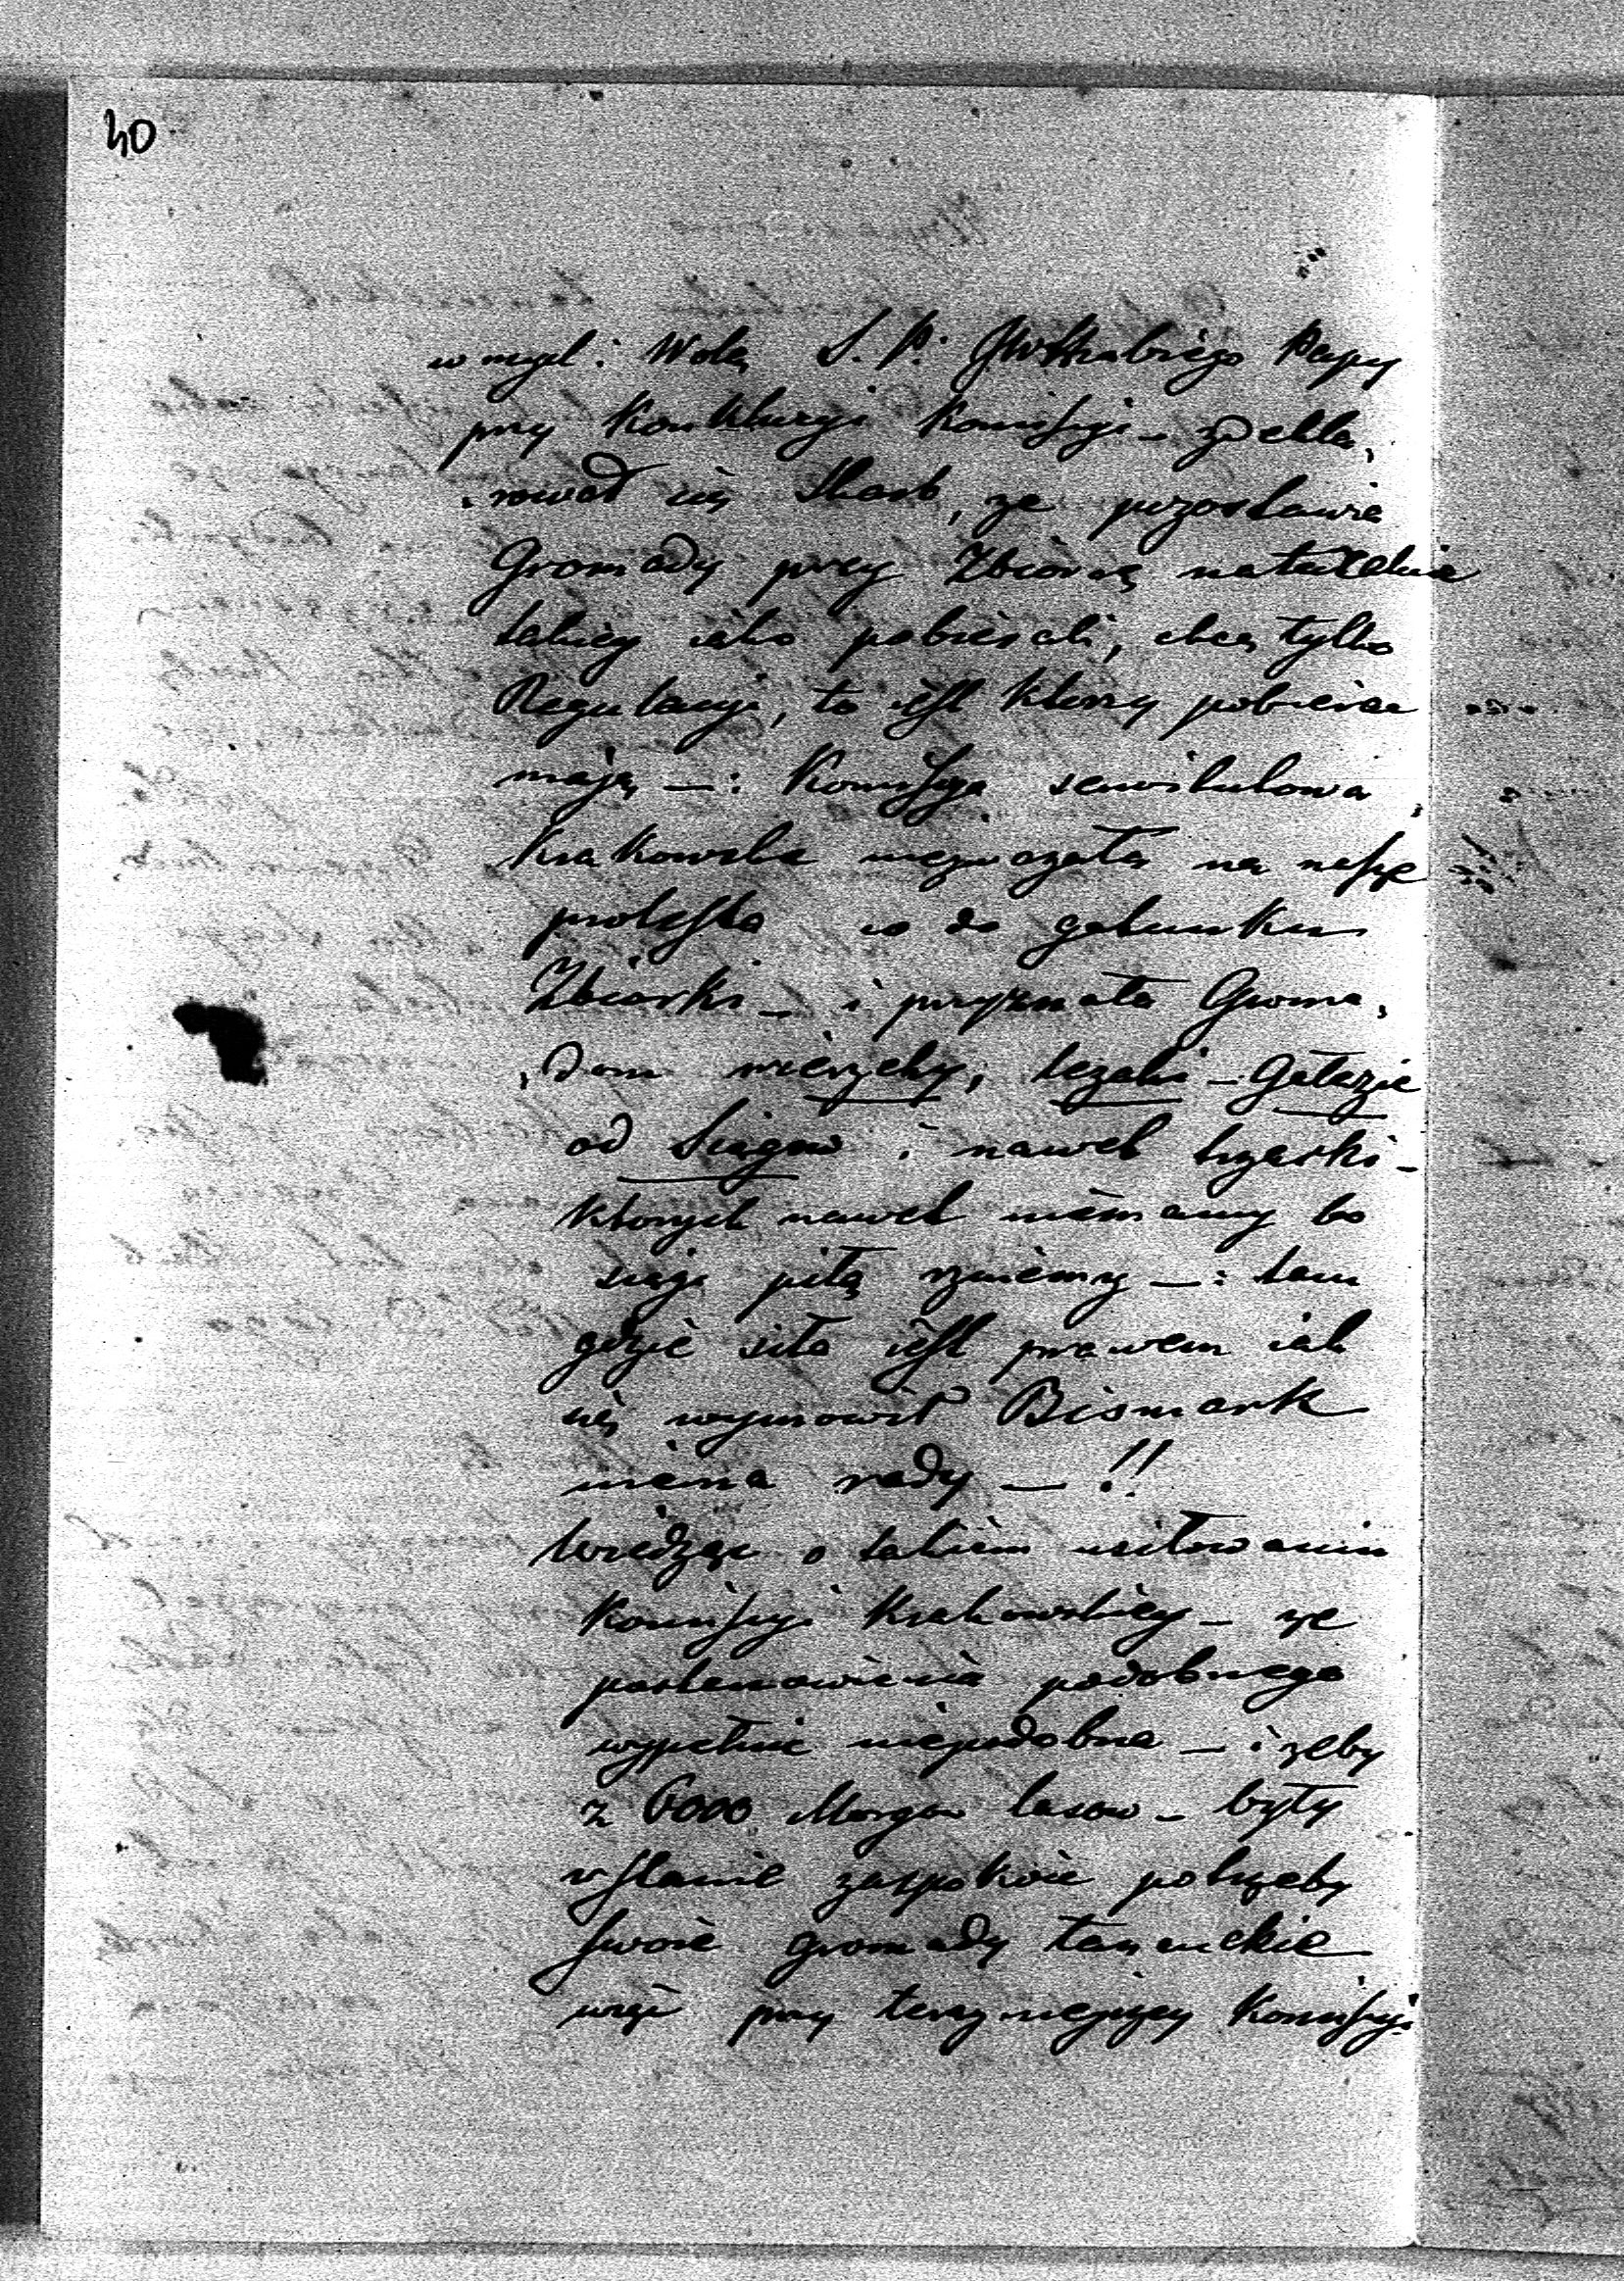 40
w mysl i Wolą S. P. JW Hrabiego Papy
przy Konkluzyi Komissyi – zdekla,
,rował się Skarb, ze pozostawia
Gromady przy Zbiorcę naturalnie
takiey iako pobierali, chcą tylko
Regulacyi, to iest ktorzy pobierac
mają –: Komissya serwitutowa
Krakowska niezwazała na nasze
protesta co do gatunku
Zbiorki – i przyznała Groma,
,dom wierzchy, lezaki – Gałęzie
od Siągow i nawet trzaski –
ktorych nawet niemamy bo
siągi piłą rzniemy –: tam
gdzie siła iest prawem iak
się wymowił Bismark
niema rady – !!
Wiedząc o takiem usiłowaniu
Komissyi Krakowskiey – ze
postanowienia podobnego
wypełnic niepodobna – i zeby
z 6000 Morgow lasow – były
w stanie zaspokoic potrzeby
swoie gromady łanuckie
więc przy terazniejszey Komissyi